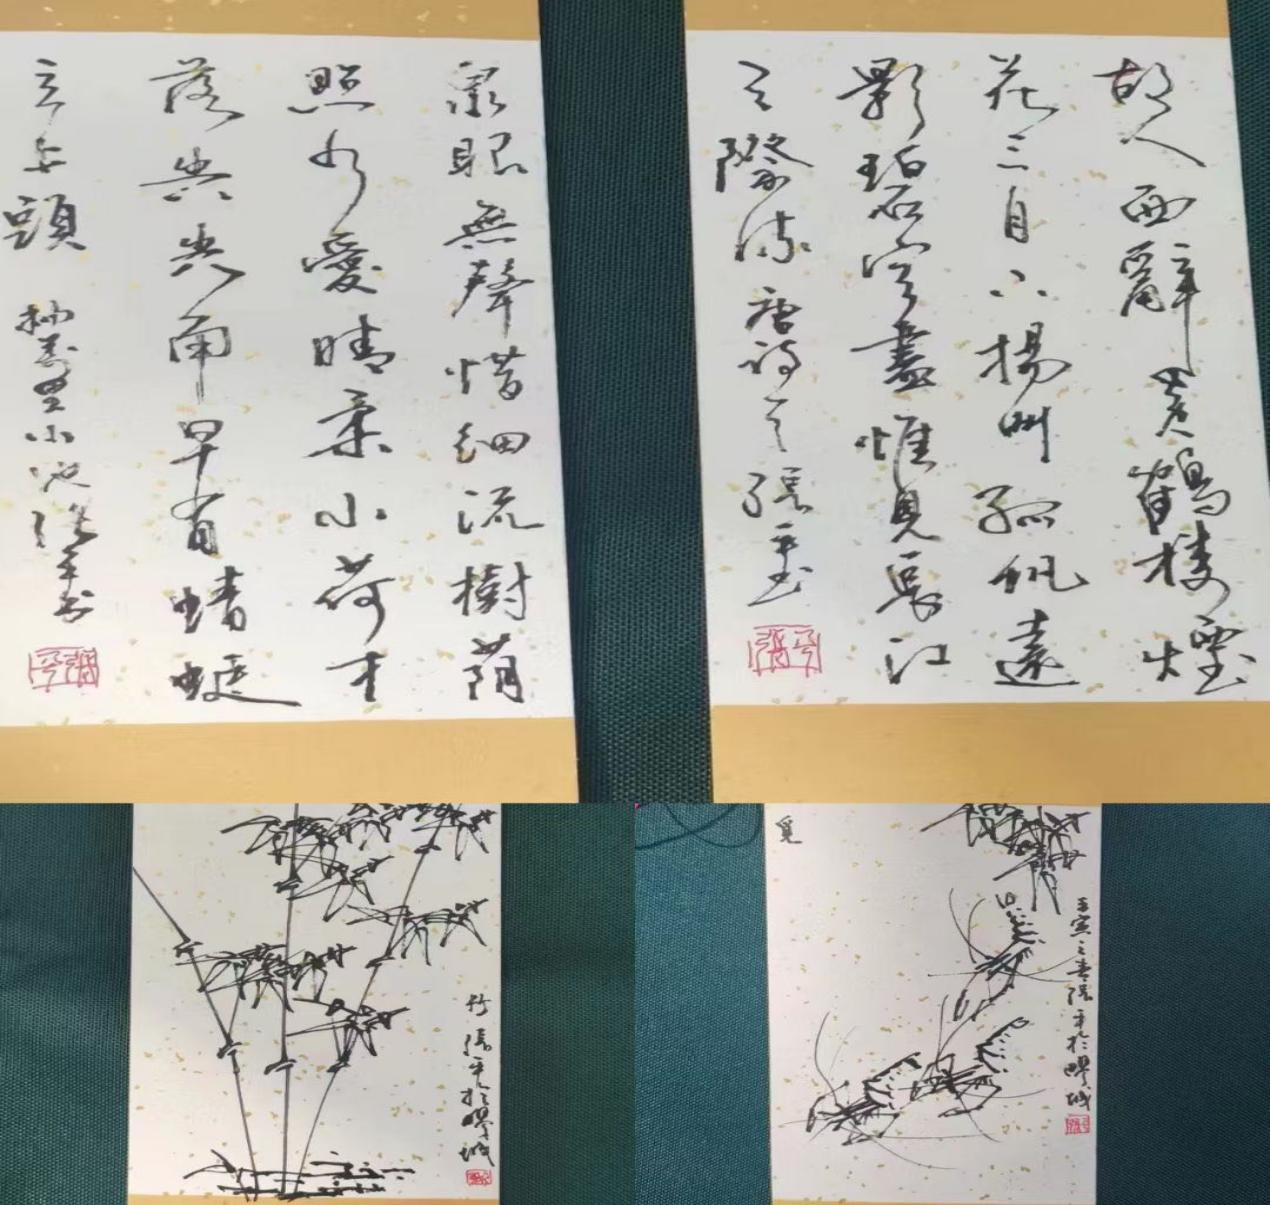 泉眼無聲惜細流樹蔭
照水愛晴柔小荷才
落尖尖角早有蜻蜓
立上頭
抄萬里小池張平書
張平
故人西辭黃鶴樓煙
花三月下揚州孤帆遠
影碧空盡惟見長江
天際流
唐詩一首張平書
張平
竹
張平於城
覓
壬寅之春張平於城